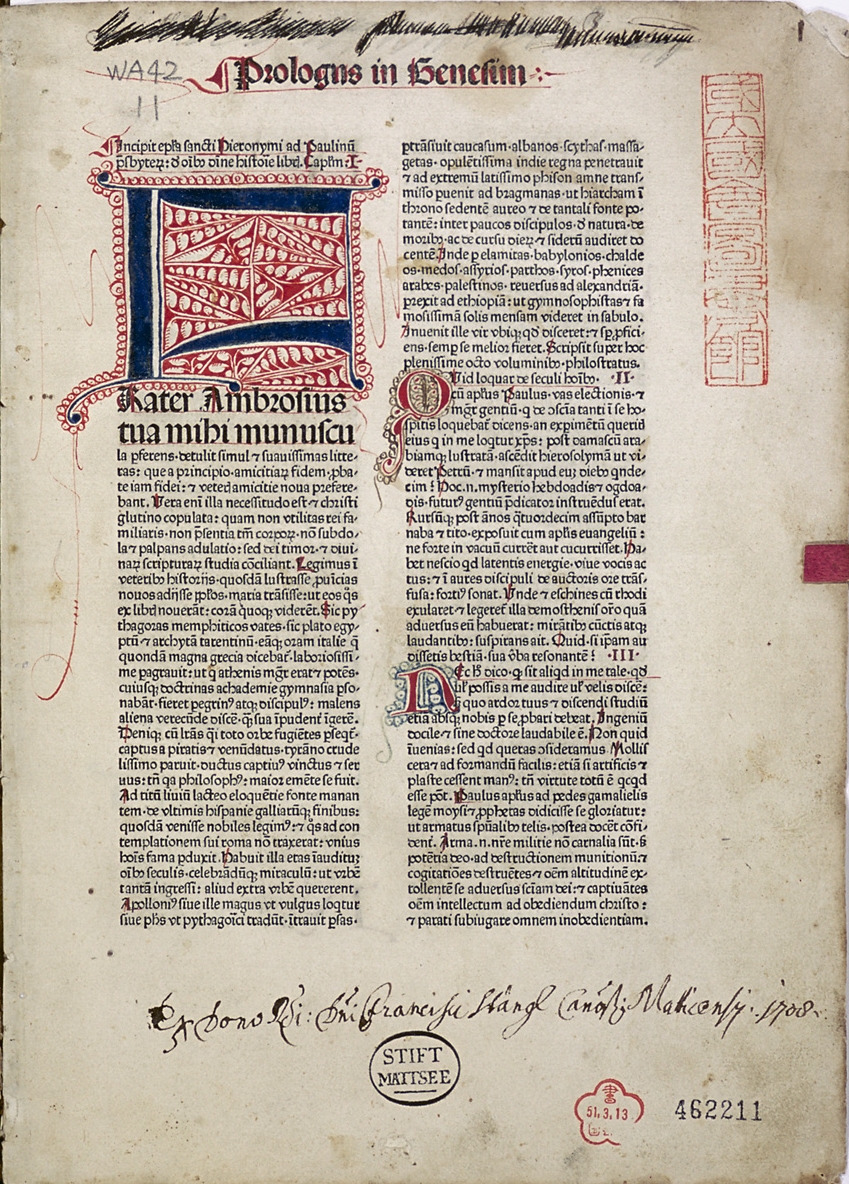 WA42
11
Prologus in Genesim
Incipit epła sancti Hieronymi ad Paulinū
p̄sbyterꝫ: d̄ oībꝰ diīne histoīe libr̄. Capłm .I.
FRater Ambrosius
tua mihi munuscu
la ꝑferens· detulit simul ⁊ suauissimas litte-
ras: que a principio amicitiaꝝ fidem· ꝓba-
te iam fidei: ⁊ veteris amicitie noua prefere-
bant. Vera enī illa necessitudo est· ⁊ christi
glutino copulata: quam non vtilitas rei fa-
miliaris· non p̄sentia tm̄ corpoꝝ· nō subdo-
la ⁊ palpans adulatio: sed dei timor· ⁊ diui-
naꝝ scripturaꝝ studia cōciliant. Legimus ī
veteribꝰ historijs· quosdā lustrasse ꝓuīcias
nouos adijsse ppl̄os· maria trāsisse: ut eos q̄s
ex libris nouerāt: corā quoqꝫ viderēt. Sic py-
thagoras memphiticos vates· sic plato egy-
ptū ⁊ archytā tarentinū· eāqꝫ oram italie q̄
quondā magna grecia dicebat̄· laboriosissi-
me pagrauit: ut q̄ athenis mgr̄ erat ⁊ potēs·
cuiusqꝫ doctrinas achademie gymnasia ꝑso-
nabāt· fieret pegrinꝰ atqꝫ discipulꝰ: malens
aliena verecūde discē· q̄ꝫ sua īpudent̄ īgerē.
Deniqꝫ cū lr̄as q̄si toto orbe fugiētes ꝑseqt̄·
captus a piratis ⁊ venūdatus· tyrāno crude
lissimo paruit· ductus captiuꝰ vinctus ⁊ ser
uus: tn̄ qa philosophꝰ: maior emēte se fuit.
Ad titū liuiū lacteo eloquētie fonte manan
tem· de vltimis hispanie galliarūqꝫ finibus:
quosdā venisse nobiles legimꝰ: ⁊ q̄s ad con
templationem sui roma nō traxerat: vnius
hoīs fama ꝑduxit. Habuit illa etas īauditū
oībꝰ seculis· celebrādūqꝫ miraculū: ut vrbē
tantā ingressi: aliud extra vrbē quererent.
Apolloniꝰ siue ille magus vt vulgus loqtur
siue phs̄ vt pythagoīci tradūt· ītrauit ꝑsas·
ptrāsiuit caucasum· albanos· scythas· massa-
getas· opulētissima indie regna penetrauit
⁊ ad extremū latissimo phison amne trans-
misso puenit ad bragmanas· ut hiarcham ī
throno sedentē aureo ⁊ de tantali fonte po-
tantē: inter paucos discipulos· d̄ natura· de
moribꝰ· ac de cursu dieꝝ ⁊ siderū audiret do
centē. Inde ꝑ elamitas· babylonios· chalde
os· medos· assyrios· parthos· syros· phenices
arabes· palestinos· reuersus ad alexandriā·
ꝑrexit ad ethiopiā: ut gymnosophistas ⁊ fa
mosissimā solis mensam videret in sabulo.
Inuenit ille vir vbiqꝫ qd̄ disceret: ⁊ sꝑ ꝓfici-
ens· semꝑ se melior fieret. Scripsit super hoc
plenissime octo voluminibꝰ· philostratus.
QUid loquar de seculi hoībꝰ. ·II·
cū apl̄us Paulus· vas electionis· ⁊
mgr̄ gentiū· q de ↄscīa tanti ī se ho-
spitis loquebat̄ dicens· an exꝑimētū queritis
eius q in me loqtur xp̄s: post damascū ara-
biamqꝫ lustratā· ascēdit hierosolymā ut vi-
deret Petrū· ⁊ mansit apud euꝫ diebꝰ qnde-
cim: Hoc .n. mysterio hebdoadis ⁊ ogdoa-
dis· futurꝰ gentiū p̄dicator instruēdus erat.
Rursūqꝫ post ānos q̄tuordecim assūpto bar
naba ⁊ tito· exposuit cum apl̄is euangeliū:
ne forte in vacuū curr̄et aut cucurrisset. Ha-
bet nescio qd latentis energie· viue vocis ac
tus: ⁊ ī aures discipuli de auctoris ore trās-
fusa: fortiꝰ sonat. Vnde ⁊ eschines cū rhodi
exularet ⁊ legeret̄ illa demosthenis or̄o quā
aduersus eū habuerat: mirātibꝰ cūctis atqꝫ
laudantibꝰ: suspirans ait. Quid· si ip̄am au
dissetis bestiā· sua v̄ba resonantē: ·III·
NEc hͦ dico· q sit aliqd in me tale· qd
ul possis a me audire ul velis discē:
sꝫ quo ardor tuus ⁊ discendi studiū
etiā absqꝫ nobis ꝑ se ꝓbari debeat. Ingeniū
docile ⁊ sine doctore laudabile ē. Non quid
īuenias: sed qd queras ↄsideramus. Mollis
cera ⁊ ad formandū facilis: etiā si artificis ⁊
plaste cessent manꝰ: tn̄ virtute totū ē qcqd
esse pōt. Paulus apl̄us ad pedes gamalielis
legē moysi ⁊ ꝓphetas didicisse se gloriatur:
ut armatus spūalibꝰ telis· postea docēt cōfi-
dent̄. Arma .n. nr̄e militie nō carnalia sūt· sꝫ
potētia deo· ad destructionem munitionū: ⁊
cogitatiōes destruētes ⁊ oēm altitudinē ex-
tollentē se aduersus sciam dei: ⁊ captiuātes
oēm intellectum ad obediendum christo:
⁊ parati subiugare omnem inobedientiam.
Ex dono Rdi: Dni Francisci Stängl Canoci Maticensis. 1708.
STIFT
MATTSEE
書
51.3.13
462211
國立國會圖書館